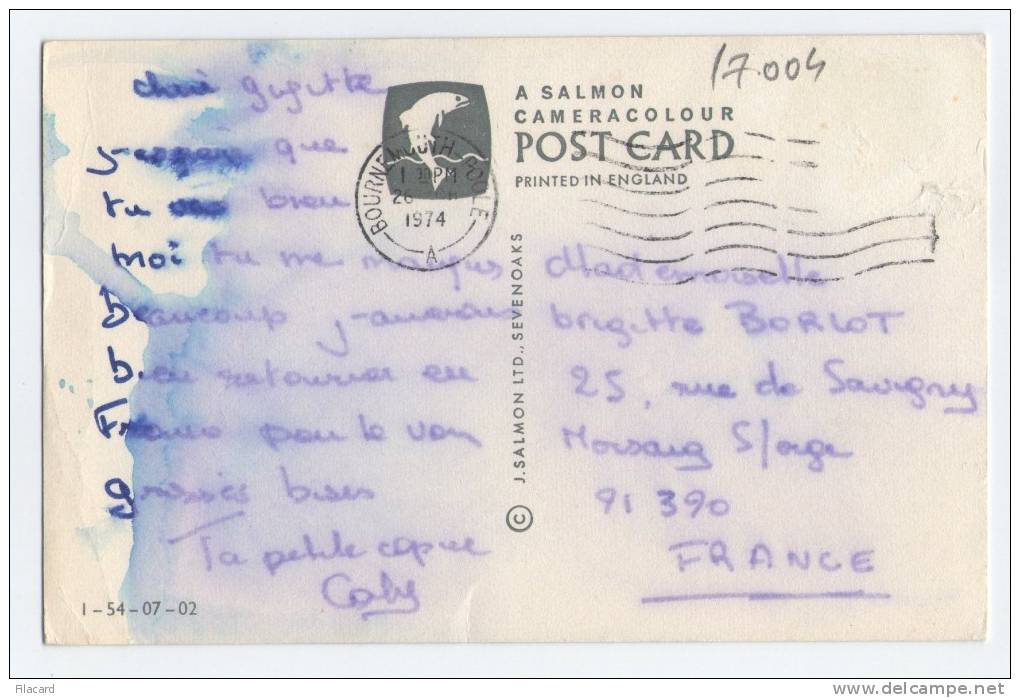 chère gigitte
j-espère que
tu vas bien
moi tu me manques
beaucoup j-aimerais
bien retourner en
France pour te voir
grosses bises
Ta petite copine
A SALMON
CAMERACOLOUR
POST CARD
PRINTED IN ENGLAND
17.004
BOURNEMOUTH-POOLE
1 PM
26
1974
A
© J.SALMON LTD., SEVENOAKS
Mademoiselle
brigitte BORLOT
25, rue de Savigny
Morsang S/orge
91 390
FRANCE
1-54-07-02
Filacard
www.delcampe.net